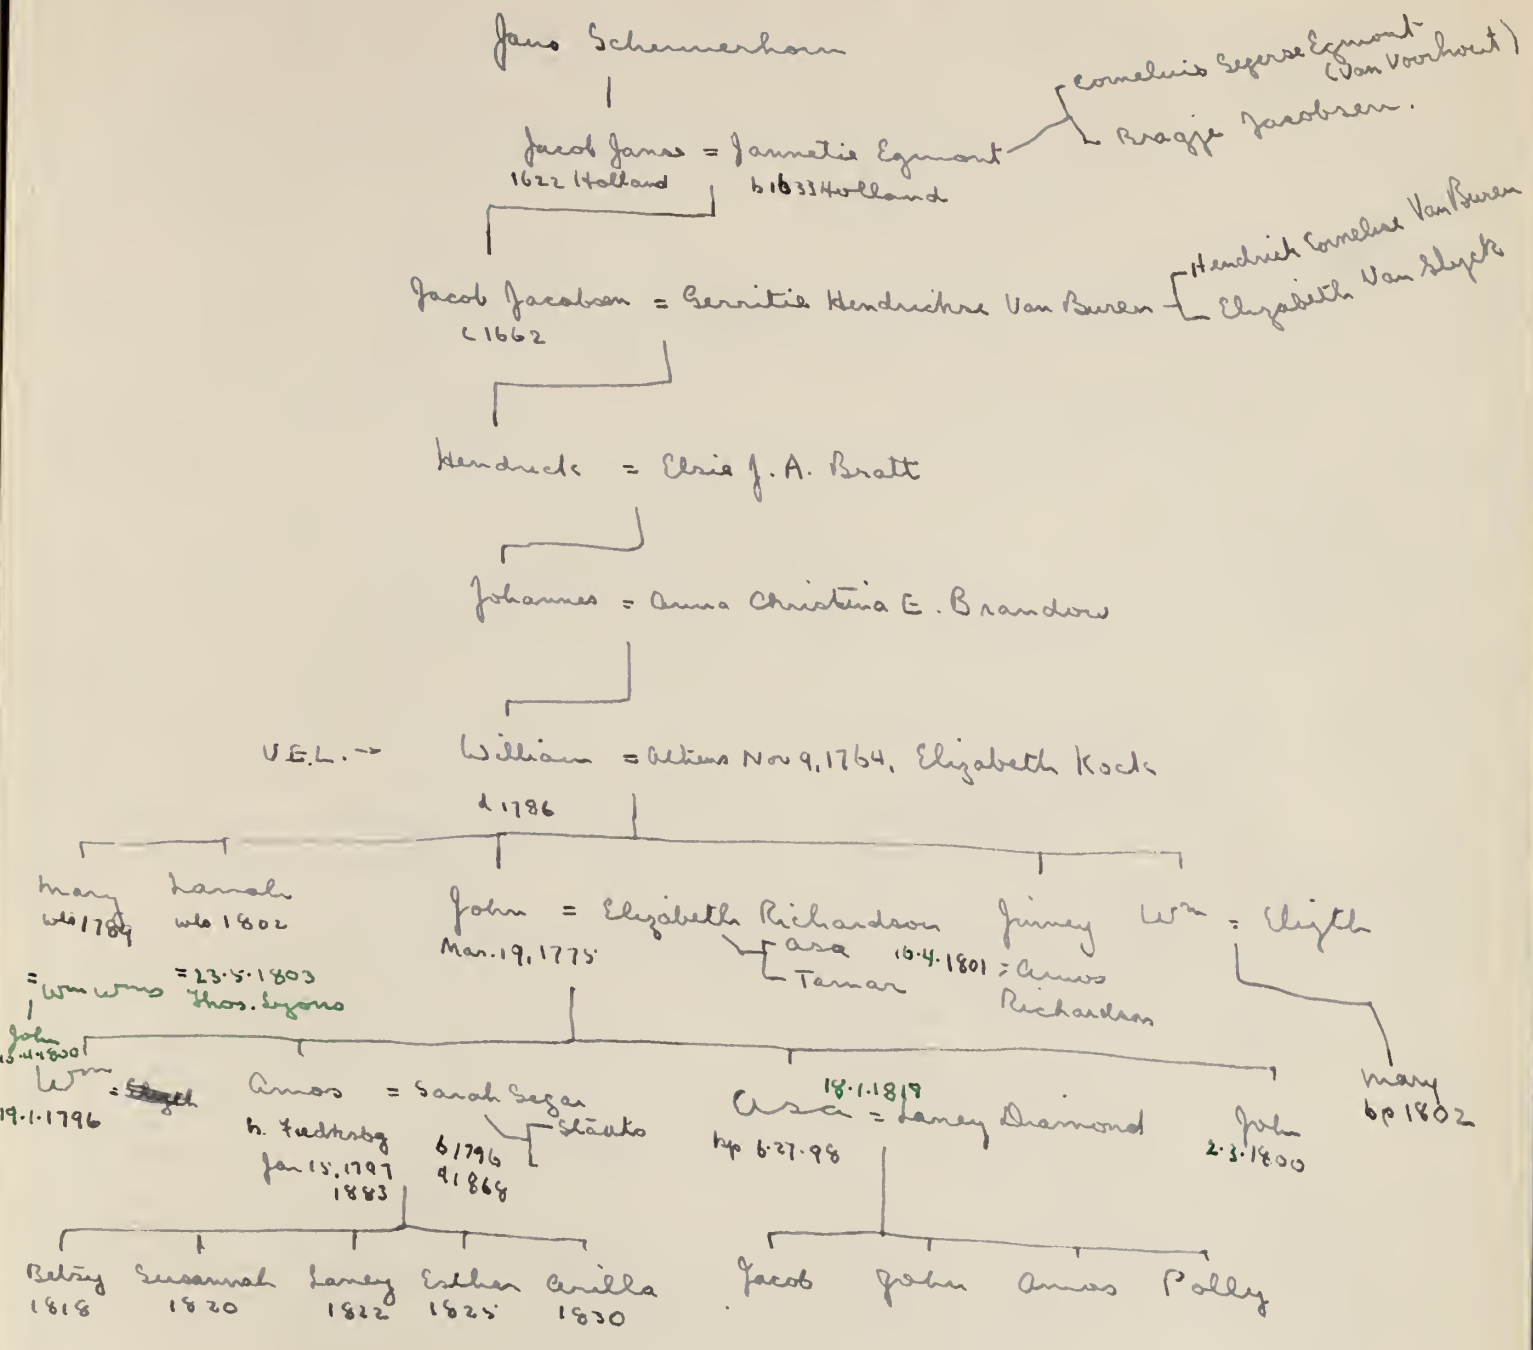 Jans Schermerhorn
Cornelius Segerse Egmont
(Van Voorhout)
Bragje Jacobsen.
Jacob Janse = Jannetie Egmont
1622 Holland b 1633 Holland
Hendrick Cornelise Van Buren
Elizabeth Van Slyck
Jacob Jacobsen = Gerritie Hendrickse Van Buren
c 1662
Hendrick = Elsie J. A. Bratt
Johannes = Anna Christina E. Brandow
U.E.L. → William = Athens Nov 9, 1764, Elizabeth Kock
d 1786
Mary
Wls 1789
Wls 1802
John = Elizabeth Richardson
Mar. 19, 1775
Asa
Tamar
Jinney
10.4.1801 = Amos
Richardson
Wm = Elizth
= Wm Wms
= 23.5.1803
Thos. Lyons
John
Wm =
19.1.1796
Amos = Sarah Segar
b. Fredksbg
Jan 15, 1797
1883
b 1796
d 1868
Staats
18.1.1819
Asa = Laney Diamond
bp 6.27.98
John
2.3.1800
Mary
bp 1802
Betsy Susannah Laney Esther Arilla
1818 1820 1822 1825 1830
Jacob John Amos Polly